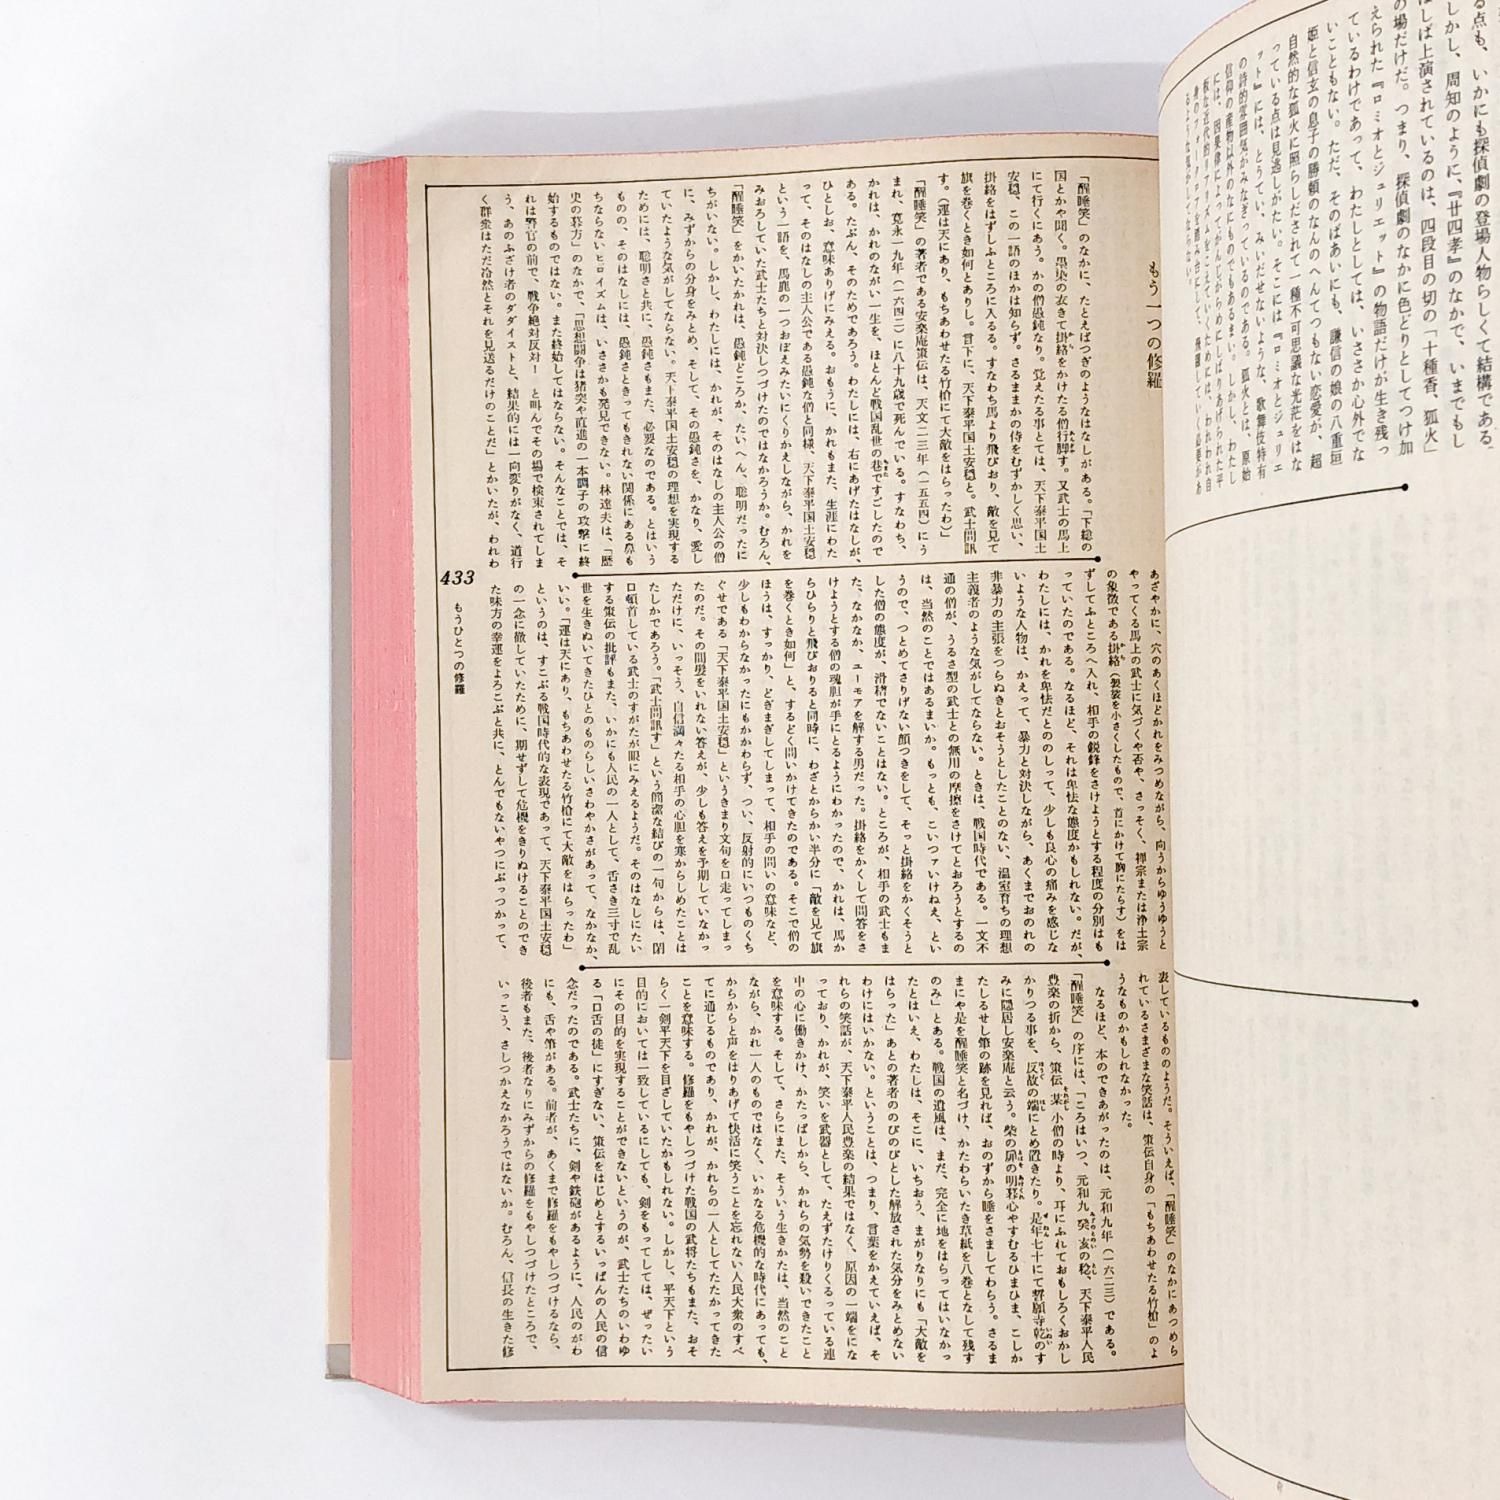 る点も、いかにも探偵劇の登場人物らしくて結構である。
しかし、周知のように、『廿四孝』のなかで、いまでもし
ばしば上演されているのは、四段目の切の「十種香、狐火」
の場だけだ。つまり、探偵劇のなかに色どりとしてつけ加
えられた『ロミオとジュリエット』の物語だけが生き残っ
ているわけであって、わたしとしては、いささか心外でな
いこともない。ただ、そのばあいにも、謙信の娘の八重垣
姫と信玄の息子の勝頼のなんのへんてつもない恋愛が、超
自然的な狐火に照らしだされて一種不可思議な光茫をはな
っている点は見逃しがたい。そこには『ロミオとジュリエ
ット』には、とうてい、みいだせないような、歌舞伎特有
の詩的雰囲気がみなぎっているのである。狐火とは、原始
信仰の産物以外のなにものでもあるまい。しかし、わたし
には、因果律によってがんじがらめにしばりあげられた平
板な近代的リアリズムをこえていくためには、われわれ自
身のフォークロアを踏み台にして、飛躍していく必要があ
るような気がしてならない。
もう一つの修羅
『醒睡笑』のなかに、たとえばつぎのようなはなしがある。「下総の
国とかや聞く。墨染の衣きて掛絡をかけたる僧行脚す。又武士の馬上
にて行くにあう。かの僧愚鈍なり。覚えたる事とては、天下泰平国土
安穏、この一語のほかは知らず。さるままかの侍をむずかしく思い、
掛絡をはずしふところに入るる。すなわち馬より飛びおり、敵を見て
旗を巻くとき如何とありし。言下に、天下泰平国土安穏と。武士問訊
す。（運は天にあり、もちあわせたる竹槍にて大敵をはらったわ）」
『醒睡笑』の著者である安楽庵策伝は、天文二三年（一五五四）にう
まれ、寛永一九年（一六四二）に八十九歳で死んでいる。すなわち、
かれは、かれのながい一生を、ほとんど戦国乱世の巷ですごしたので
ある。たぶん、そのためであろう。わたしには、右にあげたはなしが、
ひとしお、意味ありげにみえる。おもうに、かれもまた、生涯にわた
って、そのはなしの主人公である愚鈍な僧と同様、天下泰平国土安穏
という一語を、馬鹿の一つおぼえみたいにくりかえしながら、かれを
みおろしていた武士たちと対決しつづけたのではなかろうか。むろん、
『醒睡笑』をかいたかれは、愚鈍どころか、たいへん、聡明だったに
ちがいない。しかし、わたしには、かれが、そのはなしの主人公の僧
に、みずからの分身をみとめ、そして、その愚鈍さを、かなり、愛し
ていたような気がしてならない。天下泰平国土安穏の理想を実現する
ためには、聡明さと共に、愚鈍さもまた、必要なのである。とはいう
ものの、そのはなしには、愚鈍さときってもきれない関係にある尊も
ちならないヒロイズムは、いささかも発見できない。林達夫は、「歴
史の暮方」のなかで、「思想闘争は猪突や直進の一本調子の攻撃に終
始するものではない。また終始してはならない。そんなことでは、そ
れは警官の前で、戦争絶対反対！　と叫んでその場で検束されてしま
う、あのふざけ者のダダイストと、結果的には一向変りがなく、道行
く群衆はただ冷然とそれを見送るだけのことだ」とかいたが、われわ
あざやかに、穴のあくほどかれをみつめながら、向うからゆうゆうと
やってくる馬上の武士に気づくや否や、さっそく、禅宗または浄土宗
の象徴である掛絡（袈裟を小さくしたもので、首にかけて胸にたらす）をは
ずしてふところへ入れ、相手の鋭鋒をさけようとする程度の分別はも
っていたのである。なるほど、それは卑怯な態度かもしれない。だが、
わたしには、かれを卑怯だとののしって、少しも良心の痛みを感じな
いような人物は、かえって、暴力と対決しながら、あくまでおのれの
非暴力の主張をつらぬきとおそうとしたことのない、温室育ちの理想
主義者のような気がしてならない。ときは、戦国時代である。一文不
通の僧が、うるさ型の武士との無用の摩擦をさけてとおろうとするの
は、当然のことではあるまいか。もっとも、こいつァいけねえ、とい
うので、つとめてさりげない顔つきをして、そっと掛絡をかくそうと
した僧の態度が、滑稽でないことはない。ところが、相手の武士もま
た、なかなか、ユーモアを解する男だった。掛絡をかくして問答をさ
けようとする僧の魂胆が手にとるようにわかったので、かれは、馬か
らひらりと飛びおりると同時に、わざとからかい半分に「敵を見て旗
を巻くとき如何」と、するどく問いかけてきたのである。そこで僧の
ほうは、すっかり、どぎまぎしてしまって、相手の問いの意味など、
少しもわからなかったにもかかわらず、つい、反射的にいつものくち
ぐせである「天下泰平国土安穏」というきまり文句を口走ってしまっ
たのだ。その間髪をいれない答えが、少しも答えを予期していなかっ
ただけに、いっそう、自信満々たる相手の心胆を寒からしめたことは
たしかであろう。「武士問訊す」という簡潔な結びの一句からは、閉
口頓首している武士のすがたが眼にみえるようだ。そのはなしにたい
する策伝の批評もまた、いかにも人民の一人として、舌さき三寸で乱
世を生きぬいてきたひとのものらしいさわやかさがあって、なかなか、
いい。「運は天にあり、もちあわせたる竹槍にて大敵をはらったわ」
というのは、すこぶる戦国時代的な表現であって、天下泰平国土安穏
の一念に徹していたために、期せずして危機をきりぬけることのでき
た味方の幸運をよろこぶと共に、とんでもないやつにぶっつかって、
表しているもののようだ。そういえば、『醒睡笑』のなかにあつめら
れているさまざまな笑話は、策伝自身の「もちあわせたる竹槍」のよ
うなものかもしれなかった。
なるほど、本のできあがったのは、元和九年（一六二三）である。
『醒睡笑』の序には、「ころはいつ、元和九、癸亥の稔、天下泰平人民
豊楽の折から、策伝某小僧の時より、耳にふれておもしろくおかし
かりつる事を、反故の端にとめ置きたり。是年七十にて誓願寺乾のす
みに隠居し安楽庵と云う。柴の扉の明暮心やすむるひまひま、こしか
たしるせし筆の跡を見れば、おのずから睡をさましてわらう。さるま
まにや是を醒睡笑と名づけ、かたわらいたき草紙を八巻となして残す
のみ」とある。戦国の遺風は、まだ、完全に地をはらってはいなかっ
たとはいえ、わたしは、そこに、いちおう、まがりなりにも「大敵を
はらった」あとの著者ののびのびとした解放された気分をみとめない
わけにはいかない。ということは、つまり、言葉をかえていえば、そ
れらの笑話が、天下泰平人民豊楽の結果ではなく、原因の一端をにな
っており、かれが、笑いを武器として、たえずたけりくるっている連
中の心に働きかけ、かたっぱしから、かれらの気勢を殺いできたこと
を意味する。そして、さらにまた、そういう生きかたは、当然のこと
ながら、かれ一人のものではなく、いかなる危機的な時代にあっても、
からからと声をはりあげて快活に笑うことを忘れない人民大衆のすべ
てに通じるものであり、かれが、かれらの一人としてたたかってきた
ことを意味する。修羅をもやしつづけた戦国の武将たちもまた、おそ
らく一剣平天下を目ざしていたかもしれない。しかし、平天下という
目的においては一致しているにしても、剣をもってしては、ぜったい
にその目的を実現することができないというのが、武士たちのいわゆ
る「口舌の徒」にすぎない、策伝をはじめとするいっぱんの人民の信
念だったのである。武士たちに、剣や鉄砲があるように、人民のがわ
にも、舌や筆がある。前者が、あくまで修羅をもやしつづけるなら、
後者もまた、後者なりにみずからの修羅をもやしつづけたところで、
いっこう、さしつかえなかろうではないか。むろん、信長の生きた修
433
もうひとつの修羅